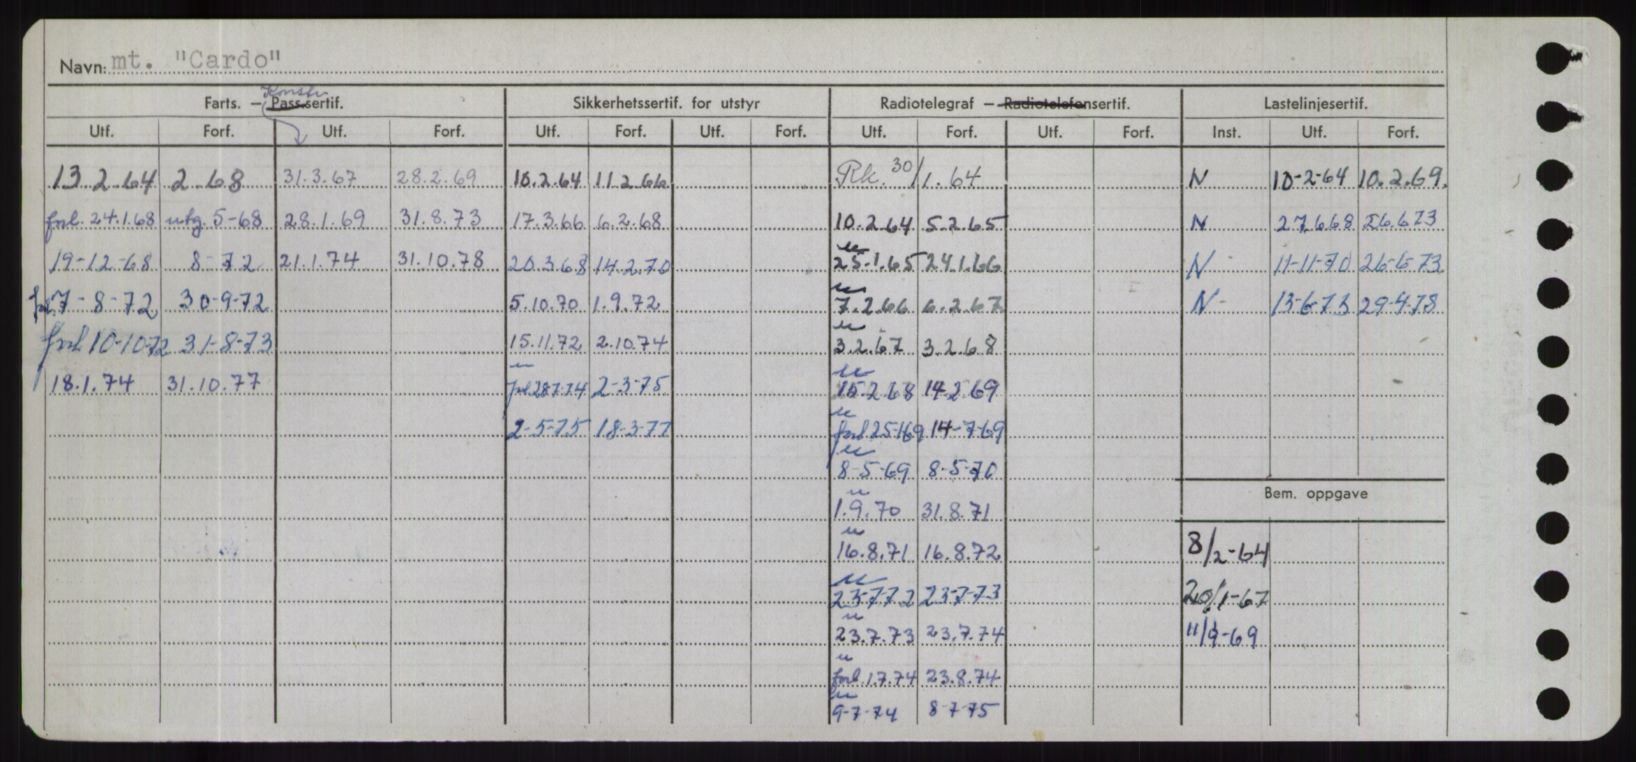 Navn: mt. "Cardo"
Konstr.
Farts. – Passsertif. Sikkerhetssertif. for utstyr Radiotelegraf – Radiotelefonsertif. Lastelinjesertif.
Utf. Forf. Utf. Forf. Utf. Forf. Utf. Forf. Utf. Forf. Utf. Forf. Inst. Utf. Forf.
13.2.64 2.68 31.3.67 28.2.69 10.2.64 11.2.66 Rk. 30/1.64 N 10-2-64 10.2.69.
forl. 24.1.68 utg. 5-68 28.1.69 31.8.73 17.3.66 6.2.68 10.2.64 5.2.65 N 27.6.68 26.6.73
19-12-68 8-72 21.1.74 31.10.78 20.3.68 14.2.70 25.1.65 24.1.66 N 11-11-70 26-6-73
7-8-72 30-9-72 5.10.70 1.9.72 7.2.66 6.2.67 N- 13-6-73 29-4-78
forl 10-10-72 31-8-73 15.11.72 2.10.74 3.2.67 3.2.68
18.1.74 31.10.77 2-3-75 15.2.68 14.2.69
2-5-75 18-3-77 forl 25-1-69 14-7-69
8-5-69 8-5-70
Bem. oppgave
1.9.70 31.8.71
16.8.71 16.8.72 8/2-64
23-7-72 23-7-73 20/1-67
23.7.73 23.7.74 11/9-69
forl. 1.7.74 23.8.74
9-7-74 8-7-75